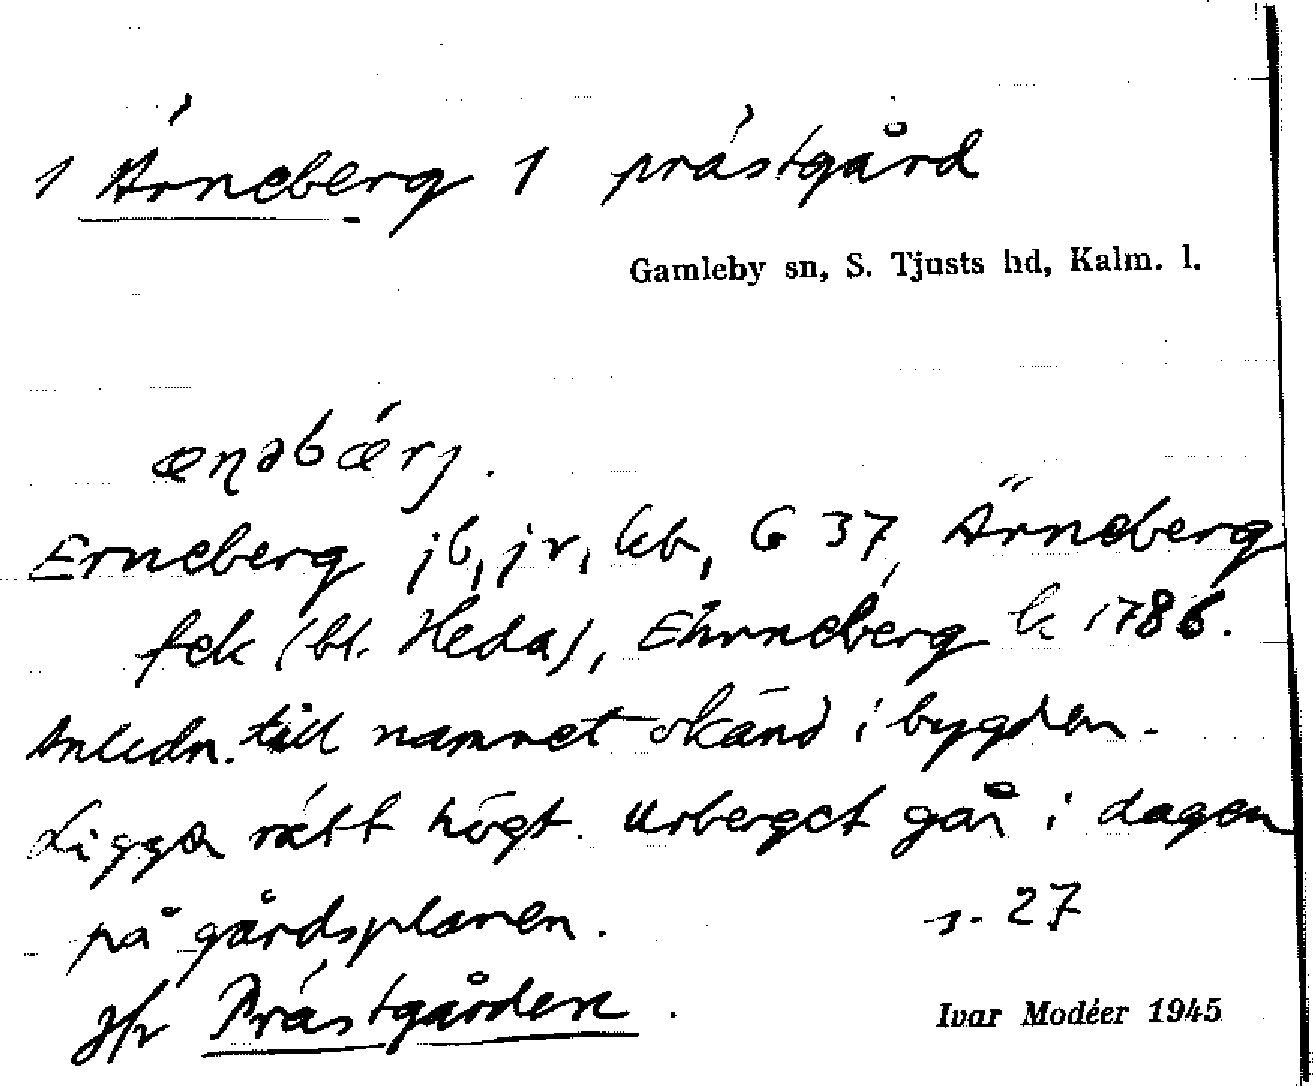 1 Ärneberg 1 prästgård
Gamleby sn, S. Tjusts hd, Kalm. l.
æṇəbǽrj.
Erneberg jb, jr, kb, G 37, Ärneberg
fek (bl. Heda), Ehrneberg k 1786.
Anledn. till namnet okänd i bygden.
Ligger rätt högt. Urberget går i dagen
på gårdsplanen. s. 27
Jfr Prästgården.
Ivar Modéer 1945